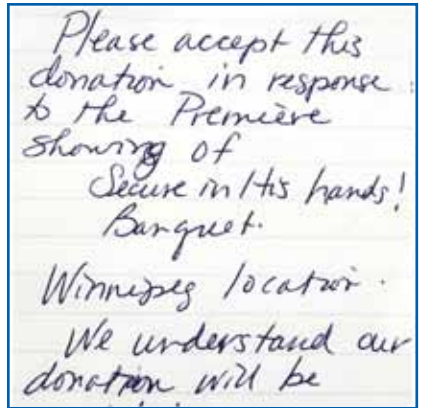 Please accept this
donation in response
to the Première
showing of
Secure in His hands!
Banquet.
Winnipeg location.
We understand our
donation will be